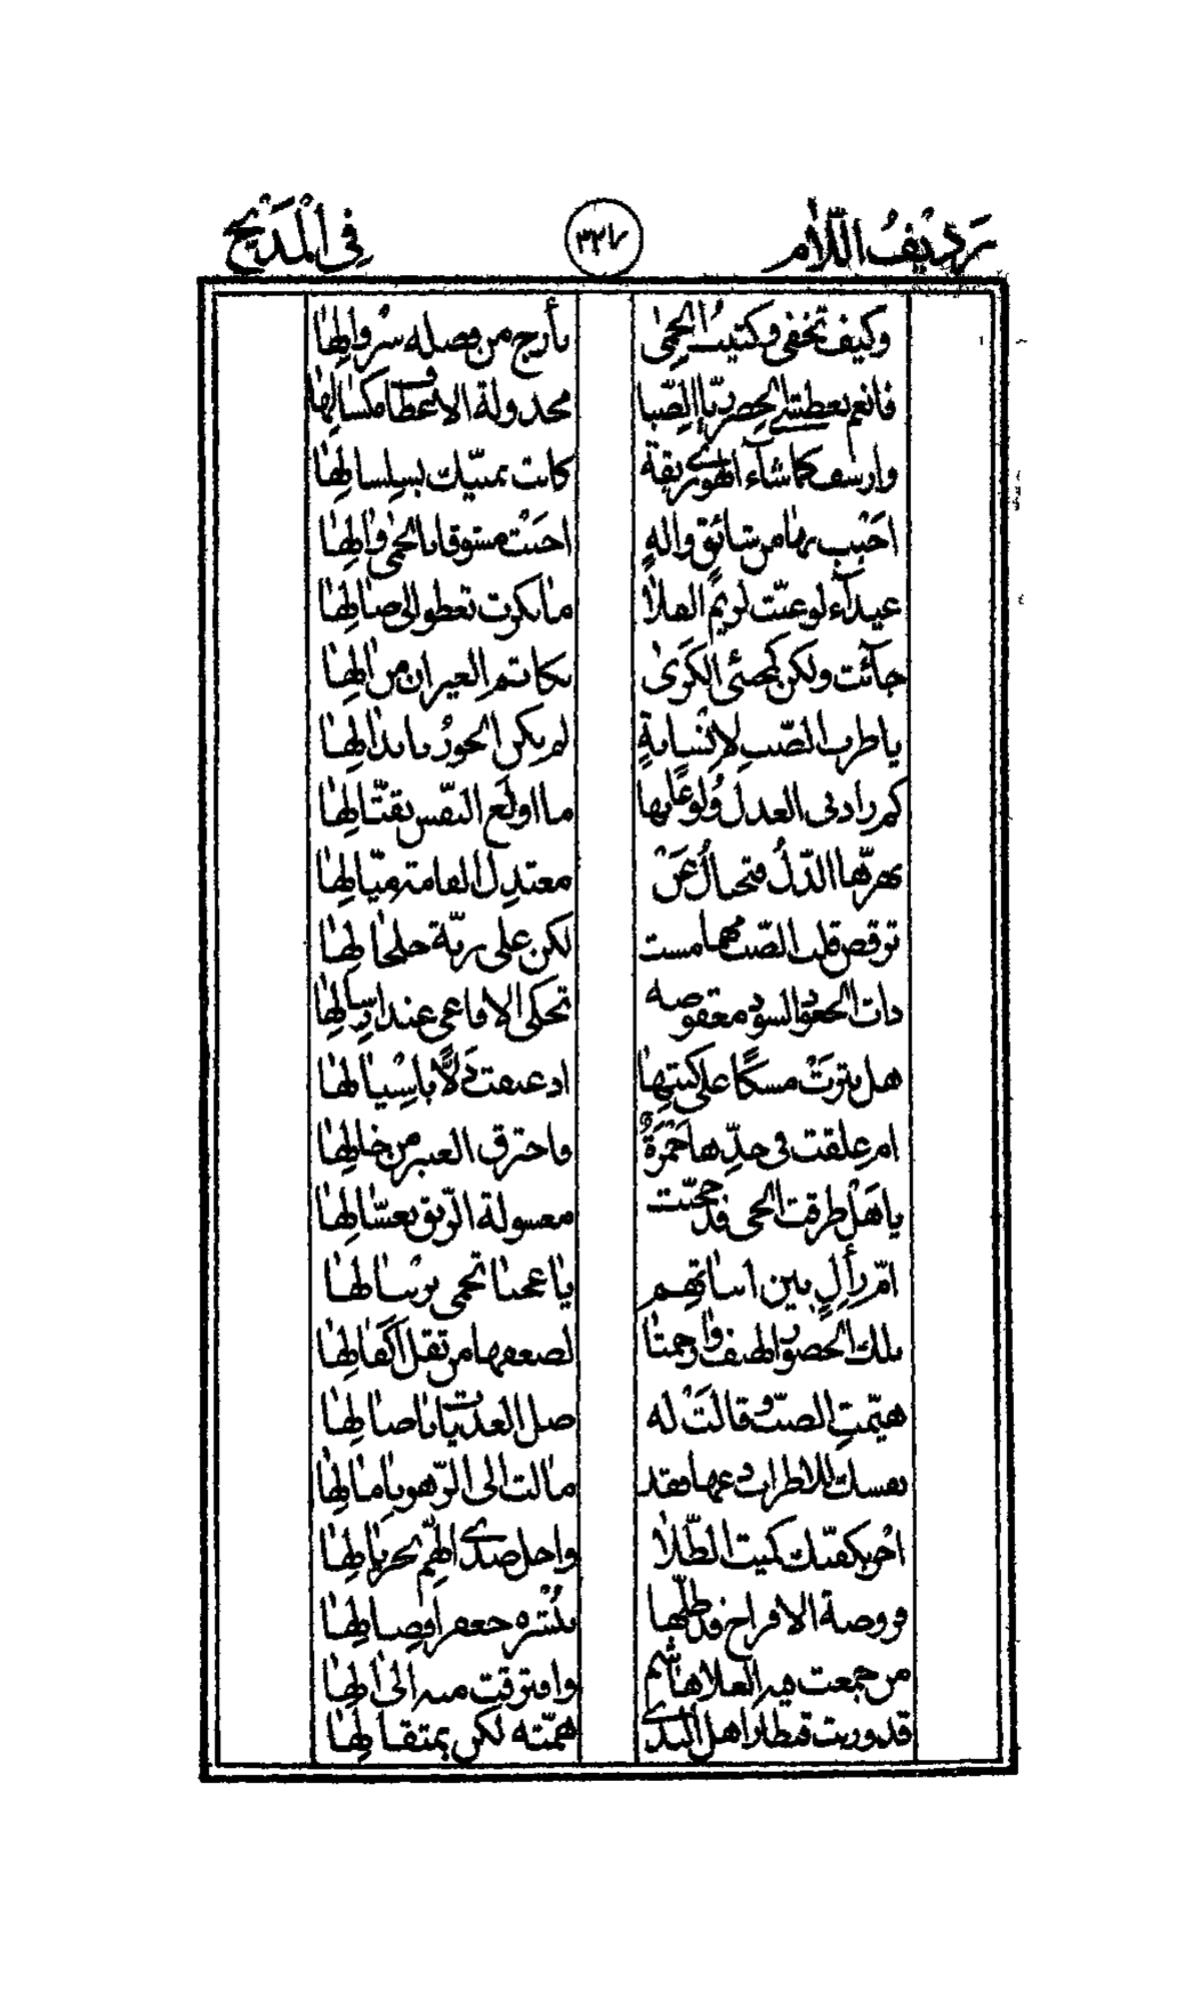 رَدِيْفُ اللّاٰم ٣٢٧ فِي الْمَدَيْح
وكيف تخفى وكتيب الحمىٰ تأرج من فصله سرْوالِهٰا
فانعم بعطشى الخصر ريّا الصّبا مجدولة الاسمطاف مكسالِهٰا
وارشف كما شآء الهوى ريقة كانت تمنيّك بسلسالِهٰا
احْبِب بهٰا من شائق والهٍ احيَتْ مشوقا بالحمٰى والِهٰا
غيدآء لو عنّت لريم الفلا مٰا بكرت تعطو الى ضٰالِهٰا
جآئت ولكن كمجئ الكَرىٰ بكاتم الغيران من اٰلِهٰا
يا طرب الصّب لاِنْسانةٍ لم يكن الحورُ بابدٰالِهٰا
كم زادنى العذل وُلوعًا بها ما اولع النّفس بقتّالِهٰا
يهزّها الدّلُّ فتختالُ عَنْ معتدِل القامة ميّالِهٰا
توقص قلب الصّب مهما مست لكن على ربّة خلخالِهٰا
ذات الجعود السود معقوصه تحكى الافاعى عند ارسالِهٰا
هل نثرَتْ مسكًا على كتبهٰا اذ عبقت دَلًّا باسْيالِهٰا
ام علقت فى خدّها جَمْرَةٌ واحترق العنبر من خالِهٰا
يا هَلْ طرقت الحى قد حجّبت معسولة الرّيق بعسّالِهٰا
امّ رألٍ بين ابياتهم يٰا عجبا تحمى برْئبالِهٰا
تلك الخصور الهيف وٰارحمتٰا لضعفها من ثقل اَكْفالِهٰا
هيّمتِ الصبّ وقالَتْ له صل العذيبات باصٰالِهٰا
نفسك للاطراب دعها فقد مٰالت الى الزّهو بامٰالِهٰا
اجْرِ بكفّيك كميت الطّلٰا واجل صدى الهمّ بجريالِهٰا
فروضة الافراح قد طلّها بُشْره جعفر افضالِهٰا
من جمعت فيه العلا هاشم وافترقت منه الى اٰلِهٰا
قد وزنت قنطار اهل الندى همّته لكن بمثقالِهٰا